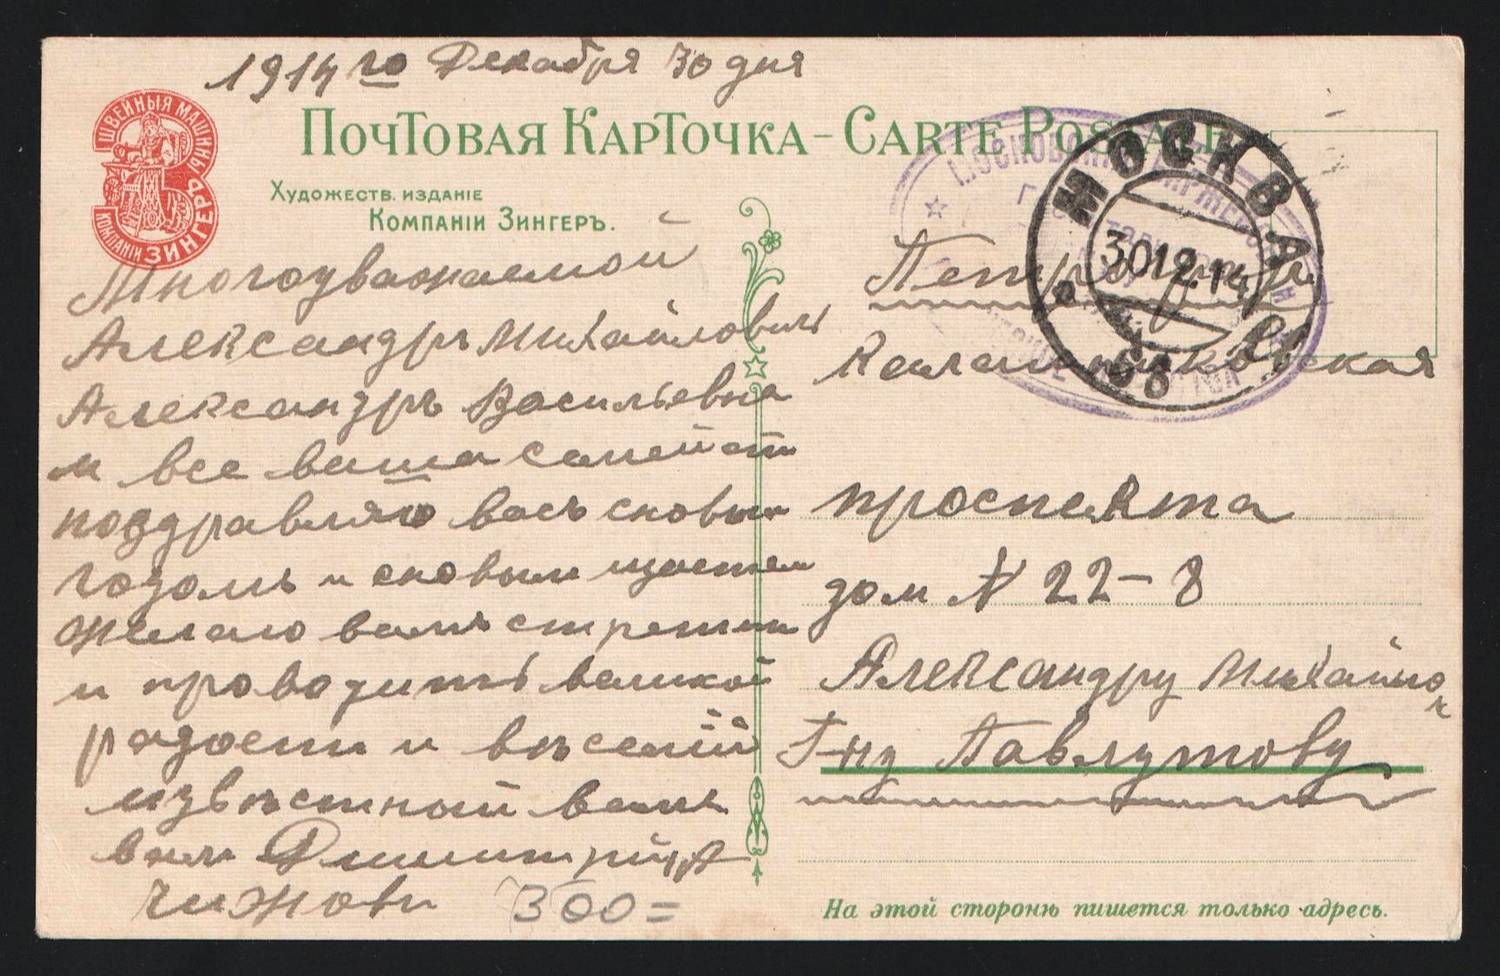 1914 го Декабря 30 дня
ШВЕЙНЫЯ МАШИНЫ
КОМПАНІИ ЗИНГЕРЪ
ПОЧТОВАЯ КАРТОЧКА – CARTE POSTALE
ХУДОЖЕСТВ. ИЗДАНІЕ
КОМПАНІИ ЗИНГЕРЪ.
Многоуважаемой
Александръ Михайловичъ
Александръ Васильевна
и все ваша семейст
поздравляю васъ сновым
годомъ и сновым щастем
Желаю вамъ стретит
и проводить великой
радости и весёлй
извѣстный вамъ
вам Дмитрій
Чижовъ
300=
МОСКВА
30 12 14
68
Петроград
Калашниковская
проспекта
дом N 22–8
Александру Михайло
Г-ну Павлутову
На этой сторонѣ пишется только адресъ.